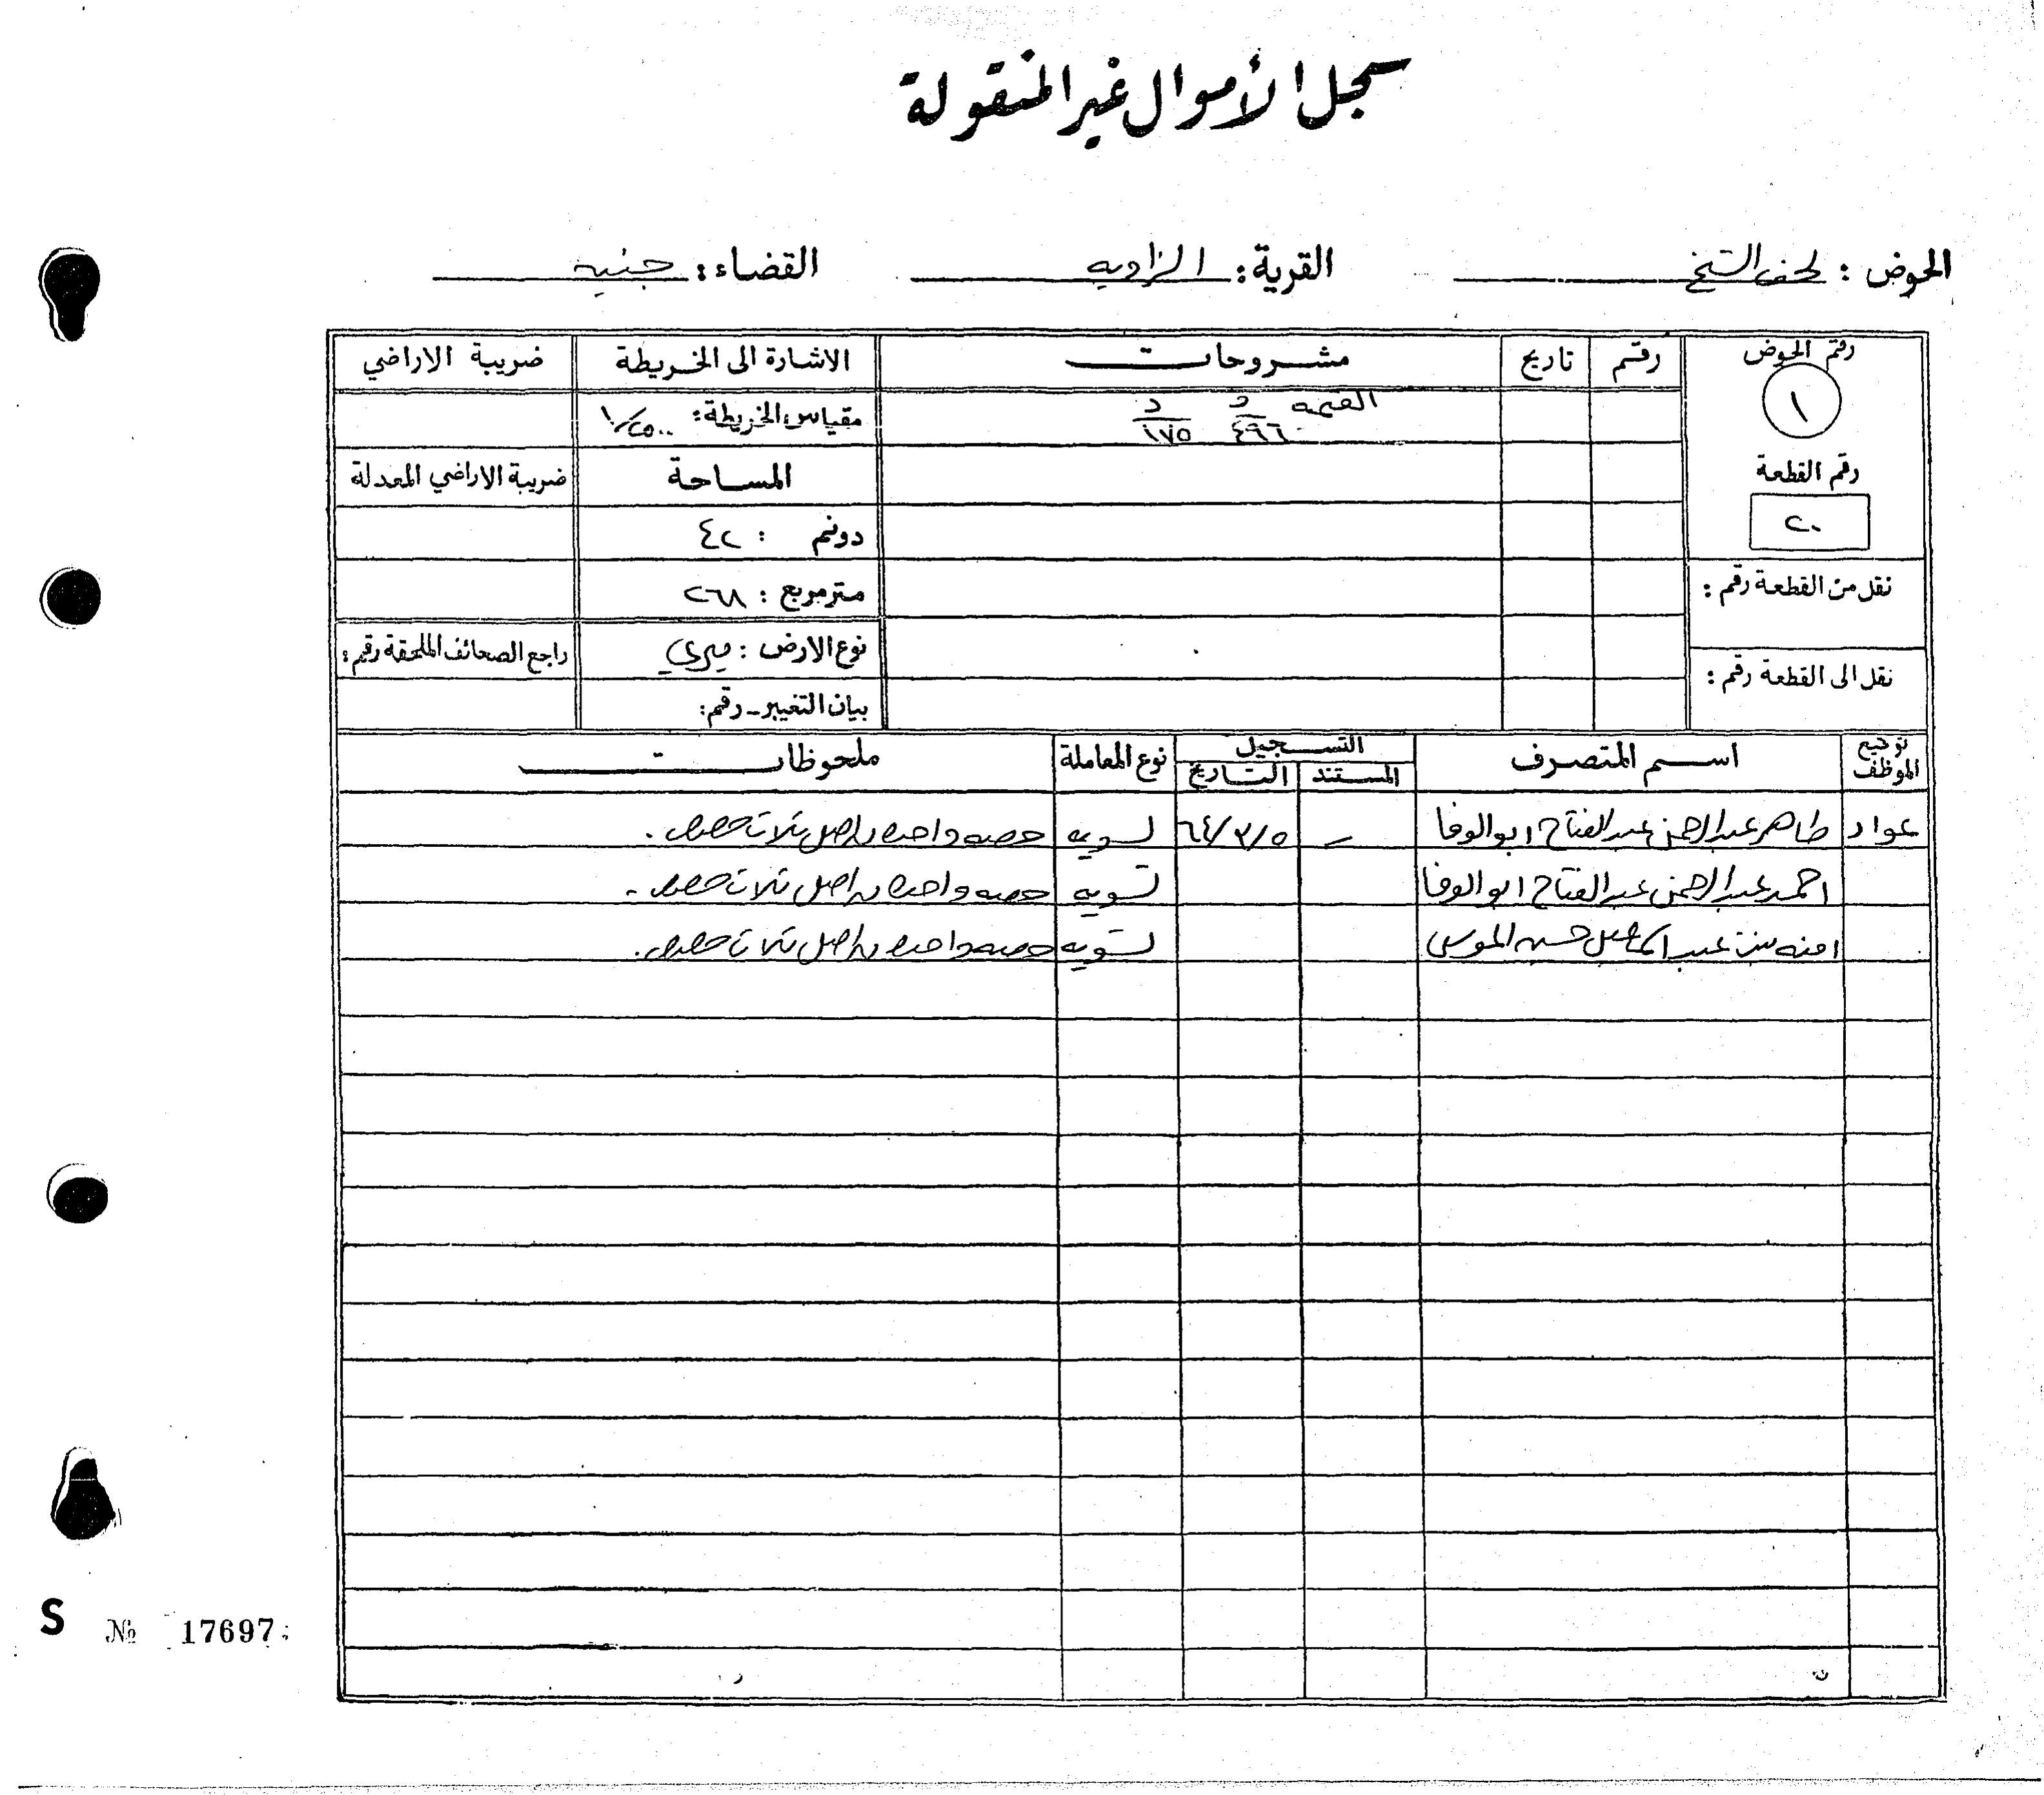 سجل الأموال غير المنقولة
الحوض : لحف الشيخ القرية : الزاويه القضاء : جنين
رقم الحوض رقم تاريخ مشروحات الاشارة الى الخريطة ضريبة الاراضي
١ القيمه د ٤٩٦ د ١٧٥ مقياس الخريطة : ١/٢٥٠٠
رقم القطعة المساحة ضريبة الاراضي المعدلة
٢٠ دونم : ٤٢
نقل من القطعة رقم : متر مربع : ٢٦٨
نوع الارض : ميري راجع الصحائف الملحقة رقم :
نقل الى القطعة رقم : بيان التغيير - رقم :
توقيع الموظف اسم المتصرف التسجيل نوع المعاملة ملحوظات
المستند التاريخ
عواد طاهر عبد الرحمن عبد الفتاح ابو الوفا - ٦٤/٣/٥ تسويه حصه واحده من اصل ثلاث حصص .
احمد عبد الرحمن عبد الفتاح ابو الوفا تسويه حصه واحده من اصل ثلاث حصص .
امنه بنت عبد اسماعيل حسين الموسى تسويه حصه واحده من اصل ثلاث حصص .
S № 17697